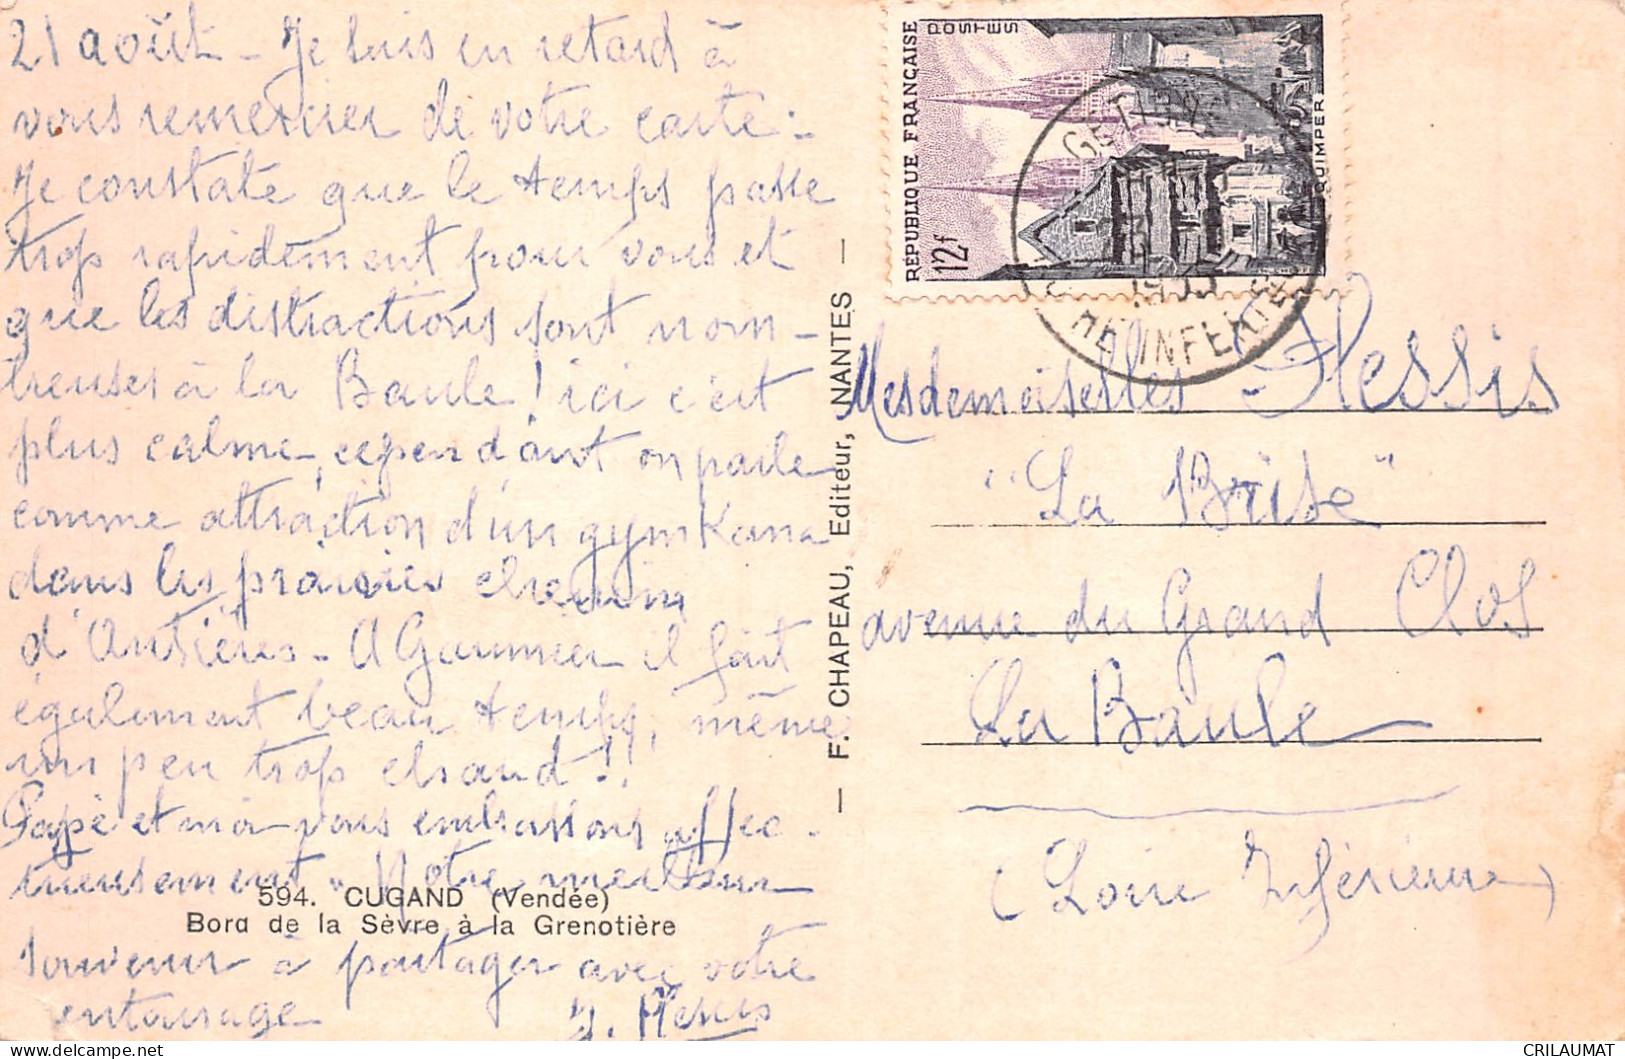 21 août - Je suis en retard à
vous remercier de votre carte :
Je constate que le temps passe
trop rapidement pour vous et
que les distractions sont nom-
breuses à la Baule ! ici c'est
plus calme, cependant on parle
comme attraction d'un gymkana
dans les prairies chemin
d'Antières - A Gaumier il fait
également beau temps, même
un peu trop chaud !!
Papé et moi vous embrassons affec-
tueusement. Notre meilleur
souvenir à partager avec votre
entourage
J. Plessis
594. CUGAND (Vendée)
Bord de la Sèvre à la Grenotière
— F. CHAPEAU, Editeur, NANTES —
RÉPUBLIQUE FRANÇAISE
POSTES
12f
QUIMPER
GETIGN
1955
INFERIE
Mesdemoiselles Plessis
"La Brise"
avenue du Grand Clos
La Baule
(Loire Inférieure)
delcampe.net
CRILAUMAT